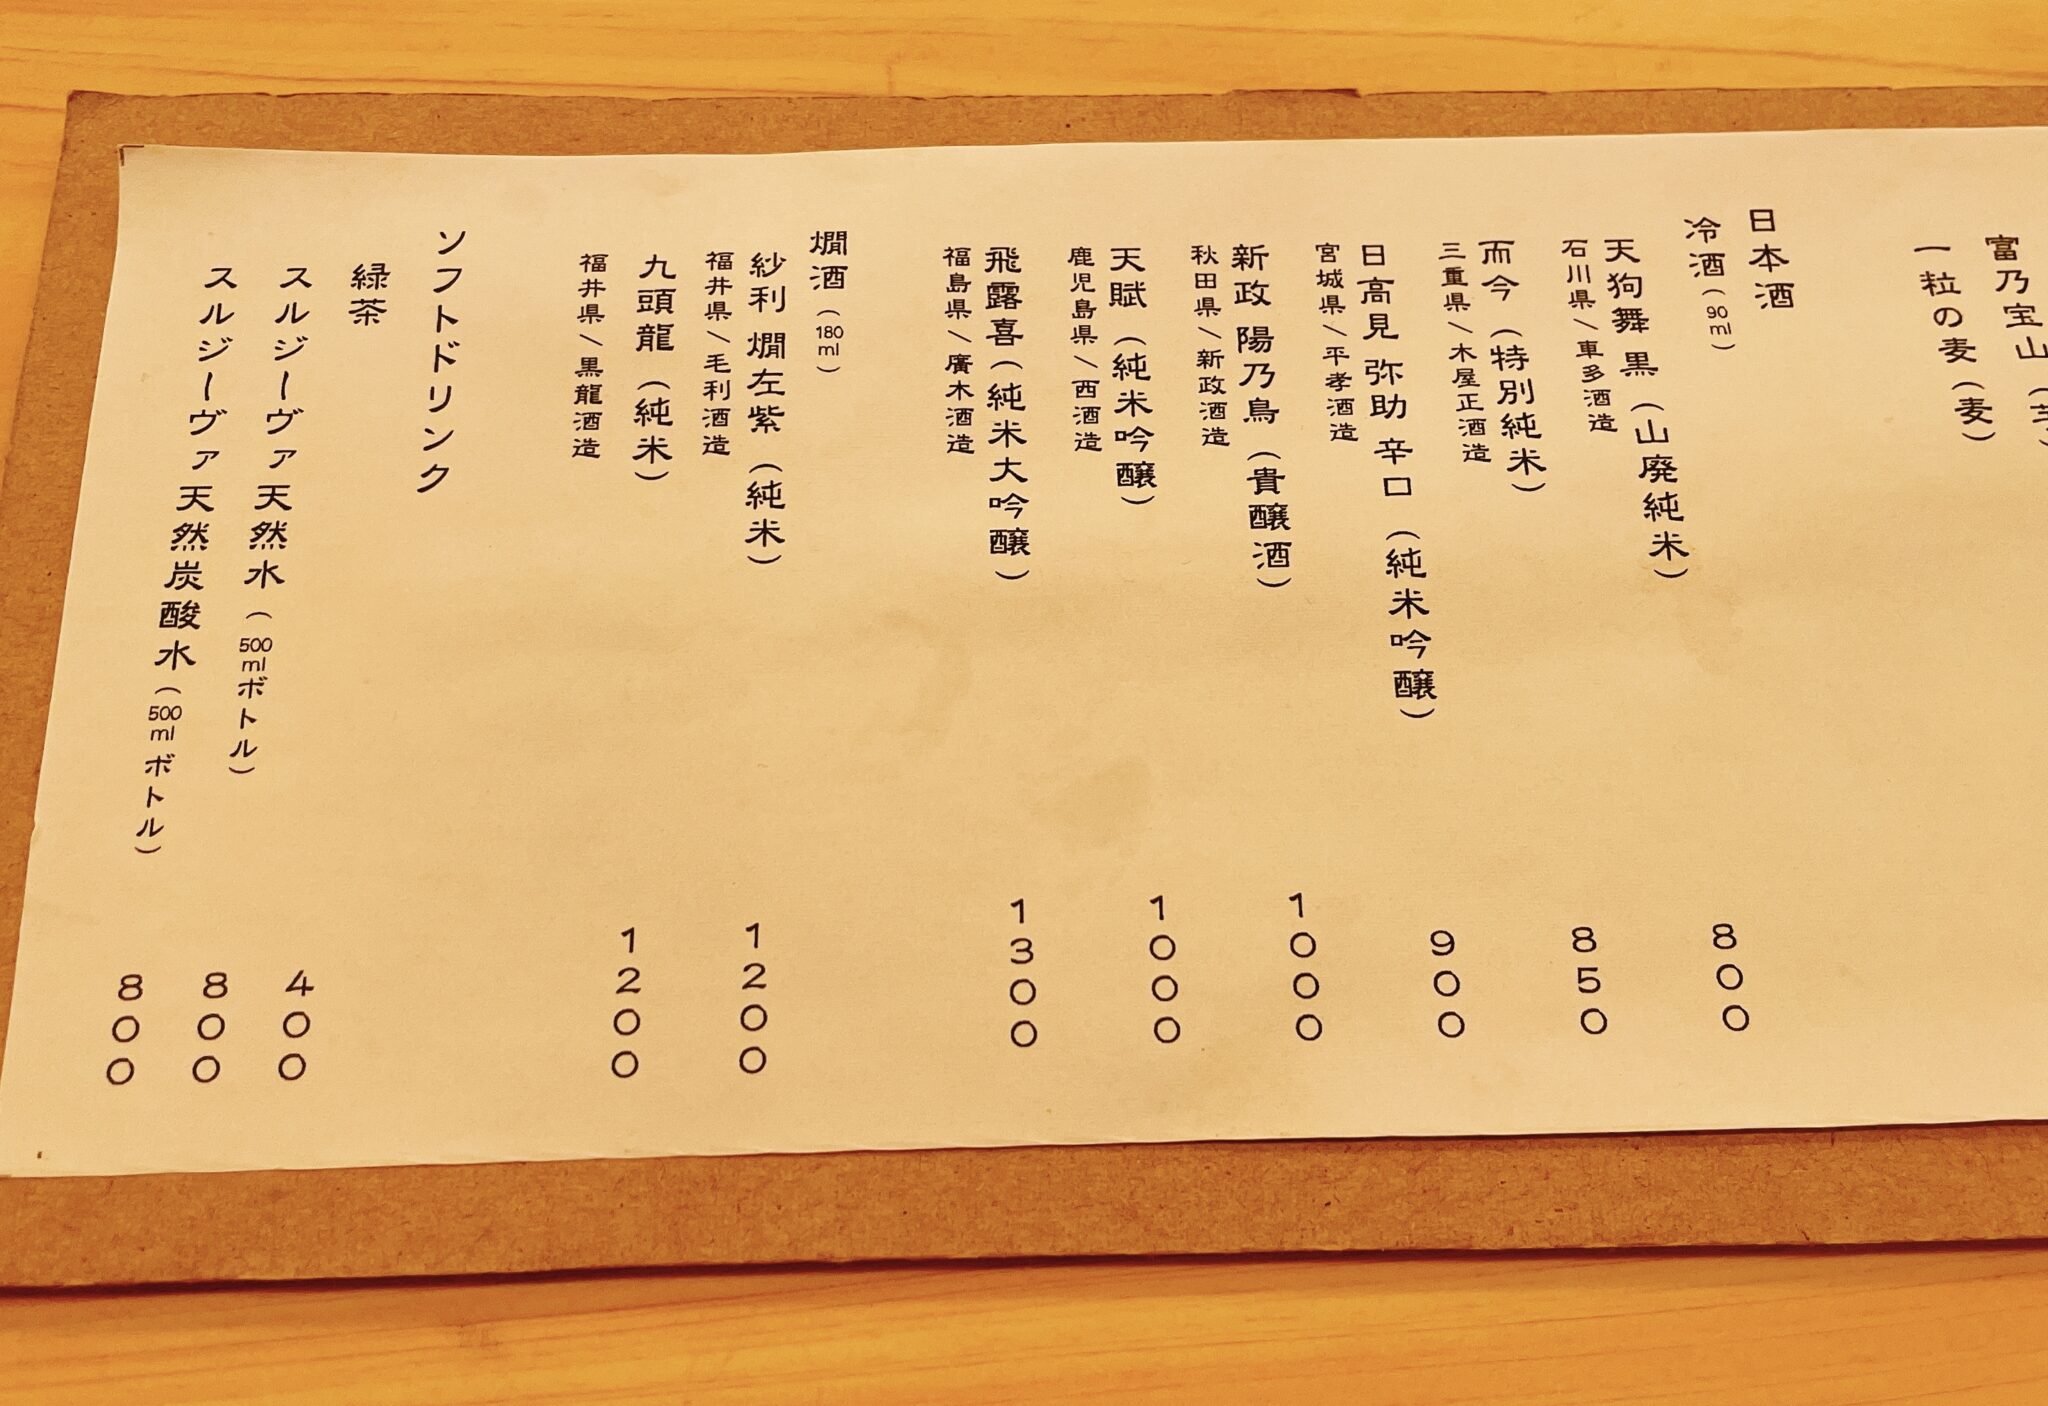 富乃宝山
一粒の麦（麦）
日本酒
冷酒（90ml）
天狗舞 黒（山廃純米） 800
石川県／車多酒造
而今（特別純米） 850
三重県／木屋正酒造
日高見 弥助 辛口（純米吟醸） 900
宮城県／平孝酒造
新政 陽乃鳥（貴醸酒） 1000
秋田県／新政酒造
天賦（純米吟醸） 1000
鹿児島県／西酒造
飛露喜（純米大吟醸） 1300
福島県／廣木酒造
燗酒（180ml）
紗利 燗左紫（純米） 1200
福井県／毛利酒造
九頭龍（純米） 1200
福井県／黒龍酒造
ソフトドリンク
緑茶 400
スルジーヴァ 天然水（500mlボトル） 800
スルジーヴァ 天然炭酸水（500mlボトル） 800